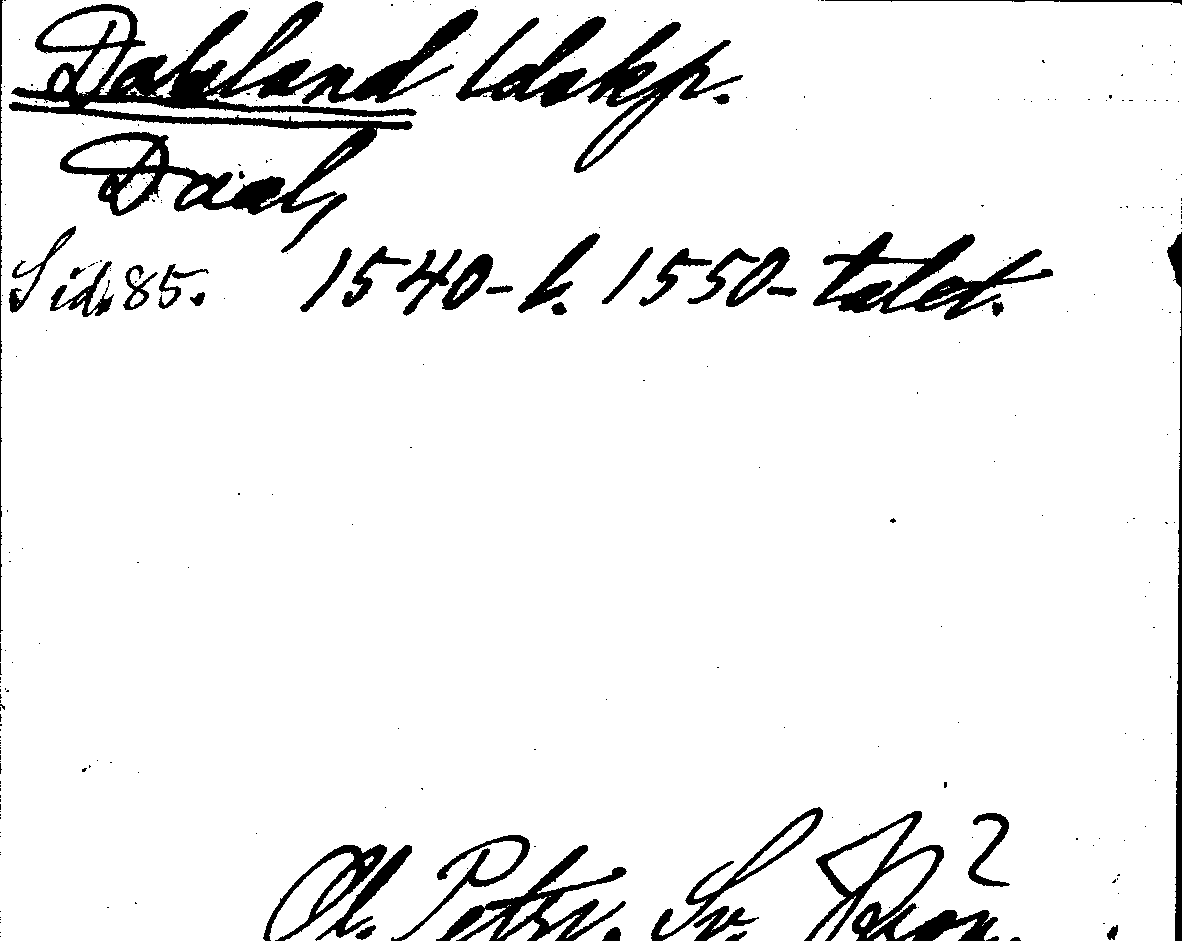 Dalsland ldskp.
Daal,
Sid. 85. 1540- b. 1550-talet.
Ol. Petri. Sv. Krön. 2